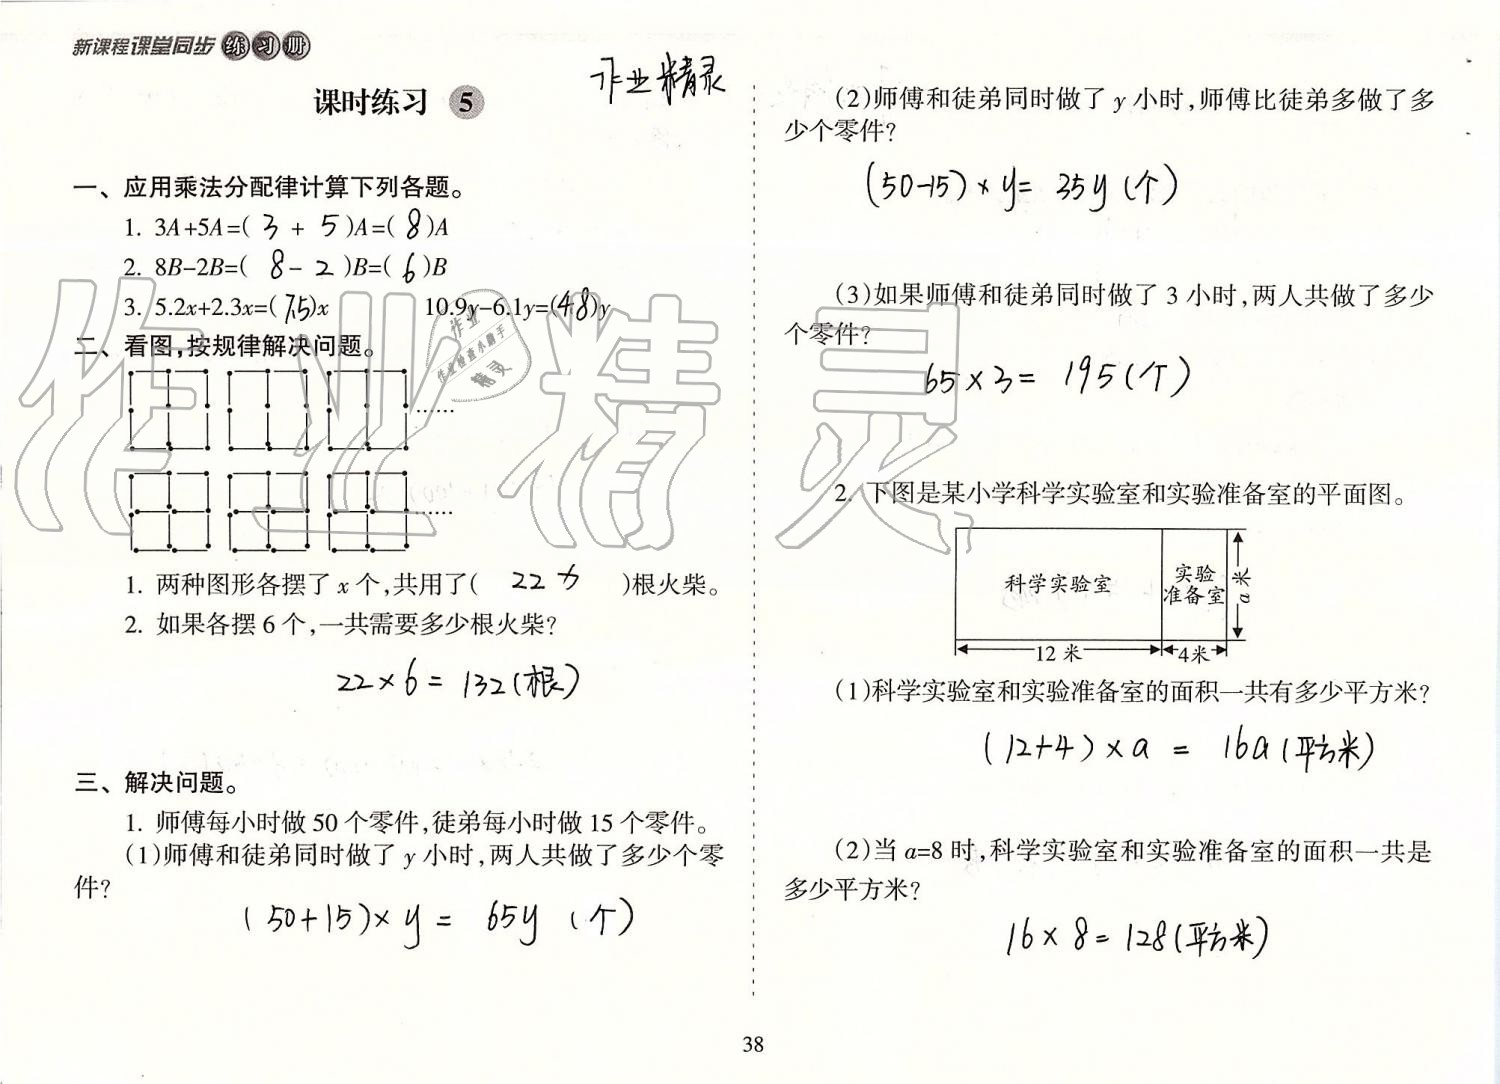 新课程课堂同步练习册
课时练习 5
作业精灵
一、应用乘法分配律计算下列各题。
1. 3A+5A=( 3 + 5 )A=( 8 )A
2. 8B-2B=( 8-2 )B=( 6 )B
3. 5.2x+2.3x=( 7.5 )x 10.9y-6.1y=( 4.8 )y
二、看图,按规律解决问题。
……
……
1. 两种图形各摆了 x 个,共用了( 22x )根火柴。
2. 如果各摆 6 个,一共需要多少根火柴?
22×6= 132(根)
三、解决问题。
1. 师傅每小时做 50 个零件,徒弟每小时做 15 个零件。
(1)师傅和徒弟同时做了 y 小时,两人共做了多少个零
件?
(50+15)×y= 65y (个)
(2)师傅和徒弟同时做了 y 小时,师傅比徒弟多做了多
少个零件?
(50-15)×y= 35y(个)
(3)如果师傅和徒弟同时做了 3 小时,两人共做了多少
个零件?
65×3= 195(个)
2. 下图是某小学科学实验室和实验准备室的平面图。
科学实验室
实验
准备室
a 米
12 米
4米
(1)科学实验室和实验准备室的面积一共有多少平方米?
(12+4)×a = 16a(平方米)
(2)当 a=8 时,科学实验室和实验准备室的面积一共是
多少平方米?
16×8=128(平方米)
38
作业精灵
作业
作业检查小助手
精灵